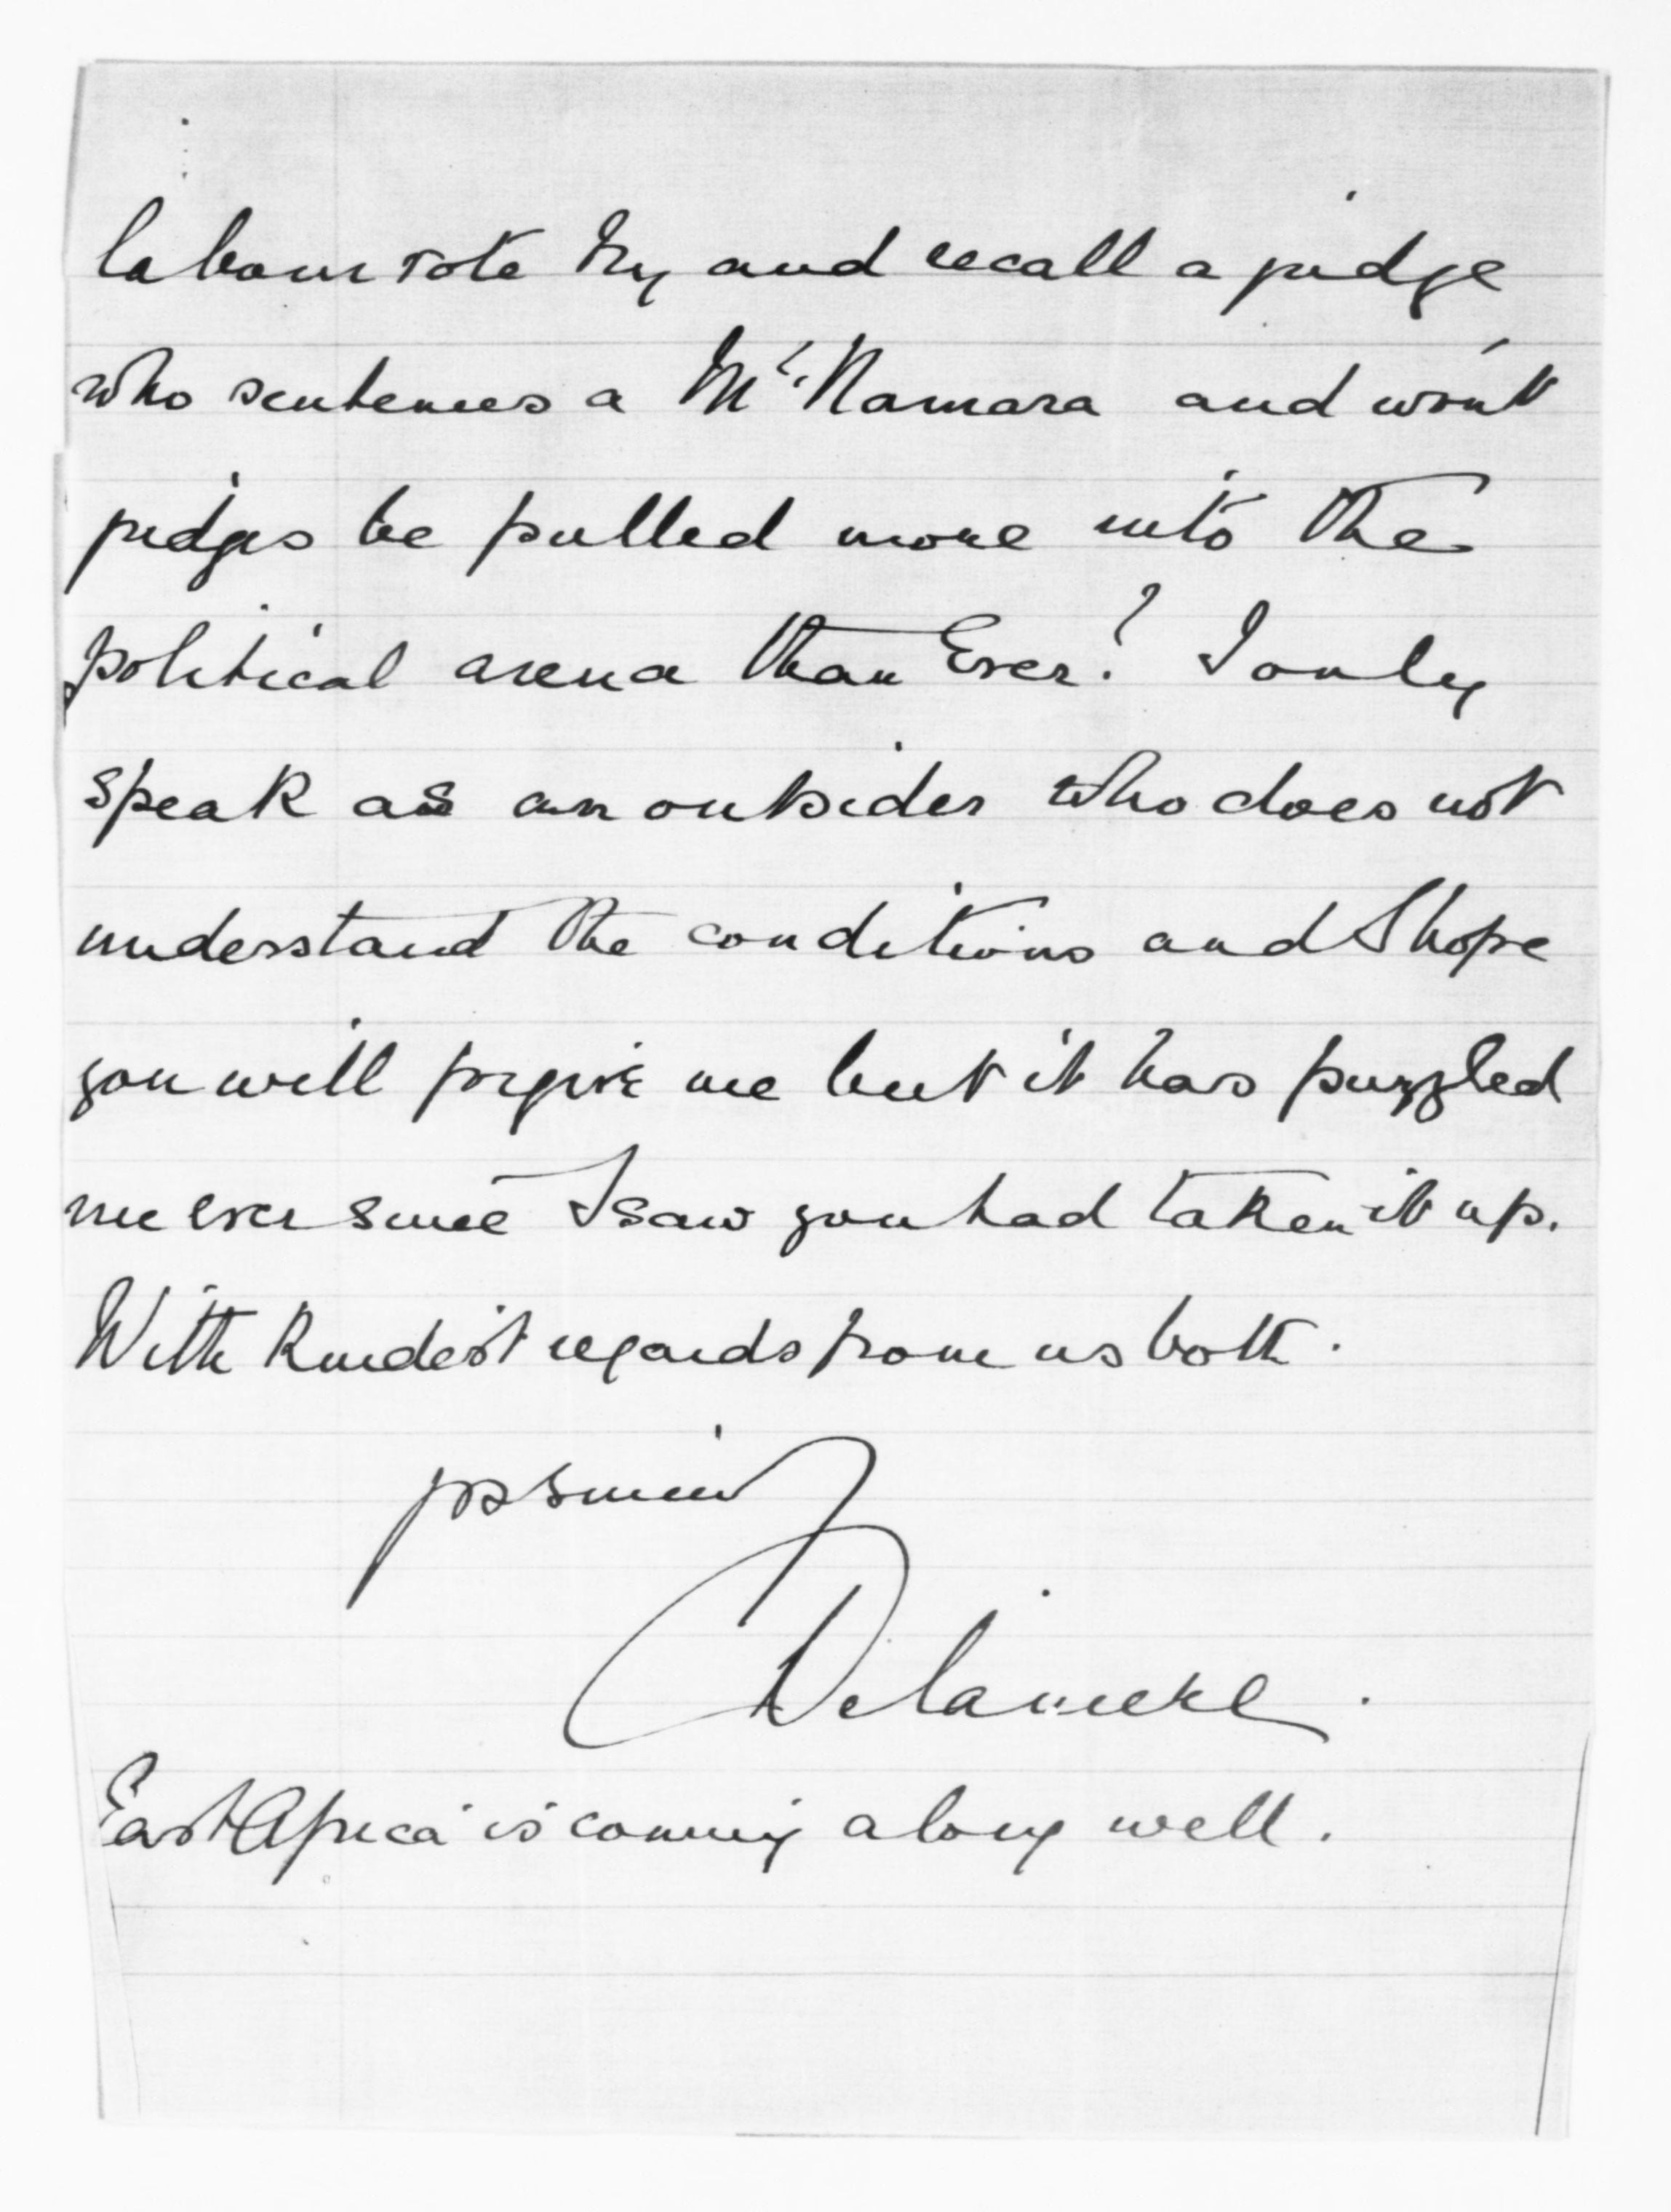 labour vote try and recall a judge
who sentences a McNamara and won't
judges be pulled more into the
political arena than Ever? I only
speak as an outsider who does not
understand the conditions and I hope
you will forgive me but it has puzzled
me ever since I saw you had taken it up.
With kindest regards from us both.
yrs sincerely
Delamere.
East Africa is coming along well.